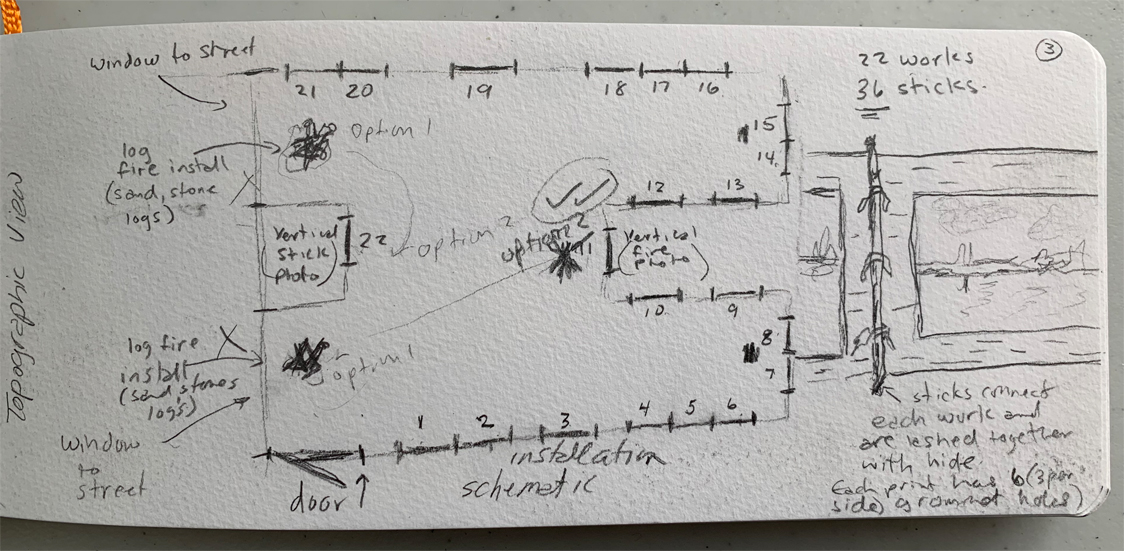 ③
22 works
36 sticks.
window to street
21 20 19 18 17 16
option 1
15
14
log
fire install
(sand, stone
logs)
12 13
(vertical
stick
photo)
22
option 2
option 2
(vertical
fire
photo)
10 9
8
7
log fire
install
(sand, stones
logs)
option 1
window
to
street
1 2 3 4 5 6
door
installation
schematic
sticks connect
each work and
are lashed together
with hide.
Each print has 6 (3 per
side) grommet holes)
Topographic vision